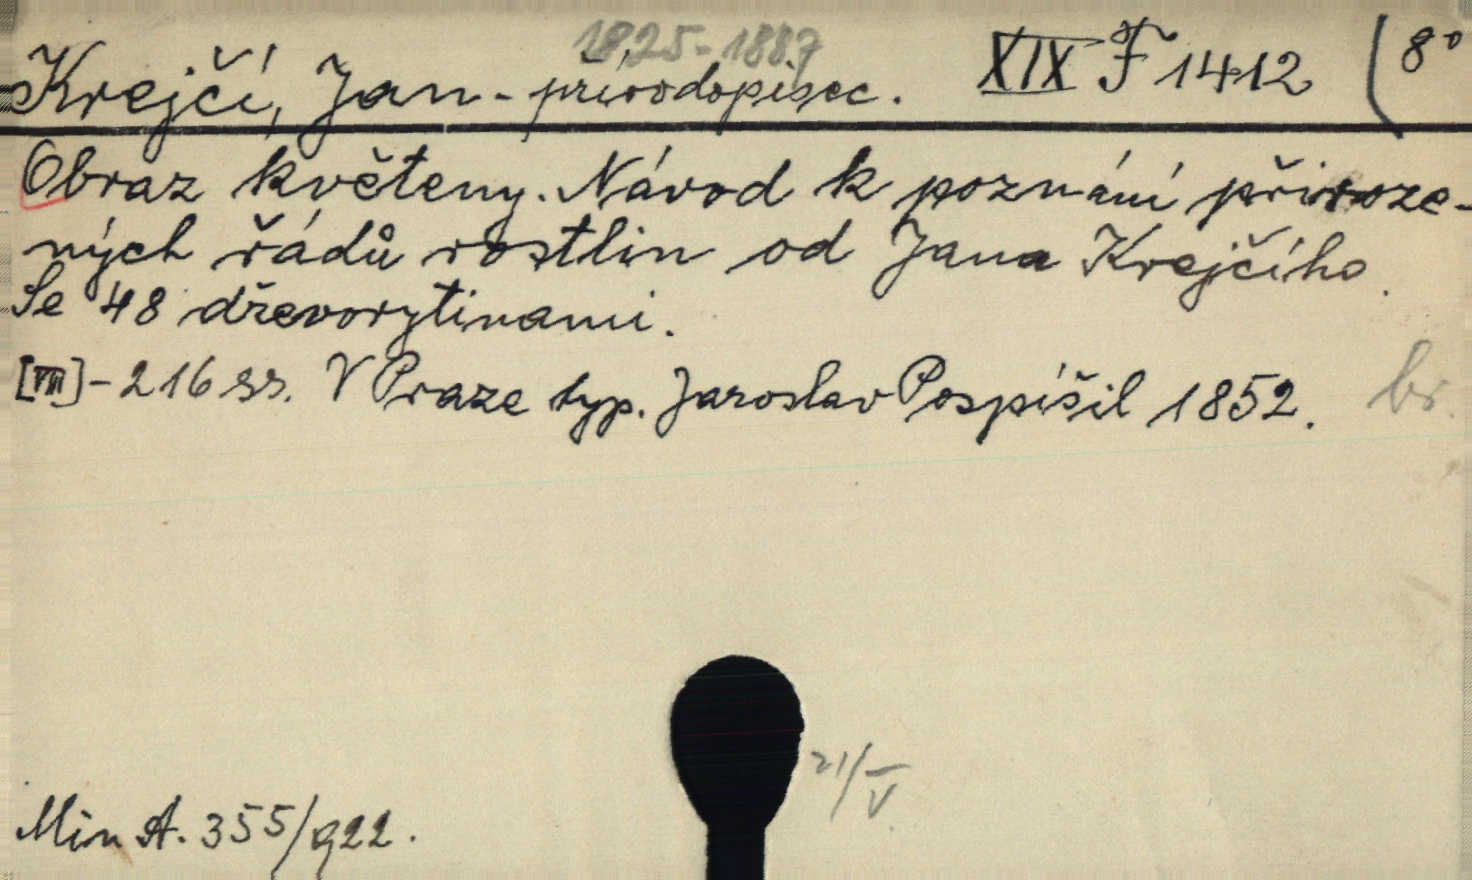 1825-1887
Krejčí, Jan - přírodopisec. XIX F 1412 (8°
Obraz květeny. Návod k poznání přiroze-
ných řádů rostlin od Jana Krejčího.
Se 48 dřevorytinami.
[VIII] - 216 ss. V Praze typ. Jaroslav Pospíšil 1852. br.
21/V
Min A. 355/922.